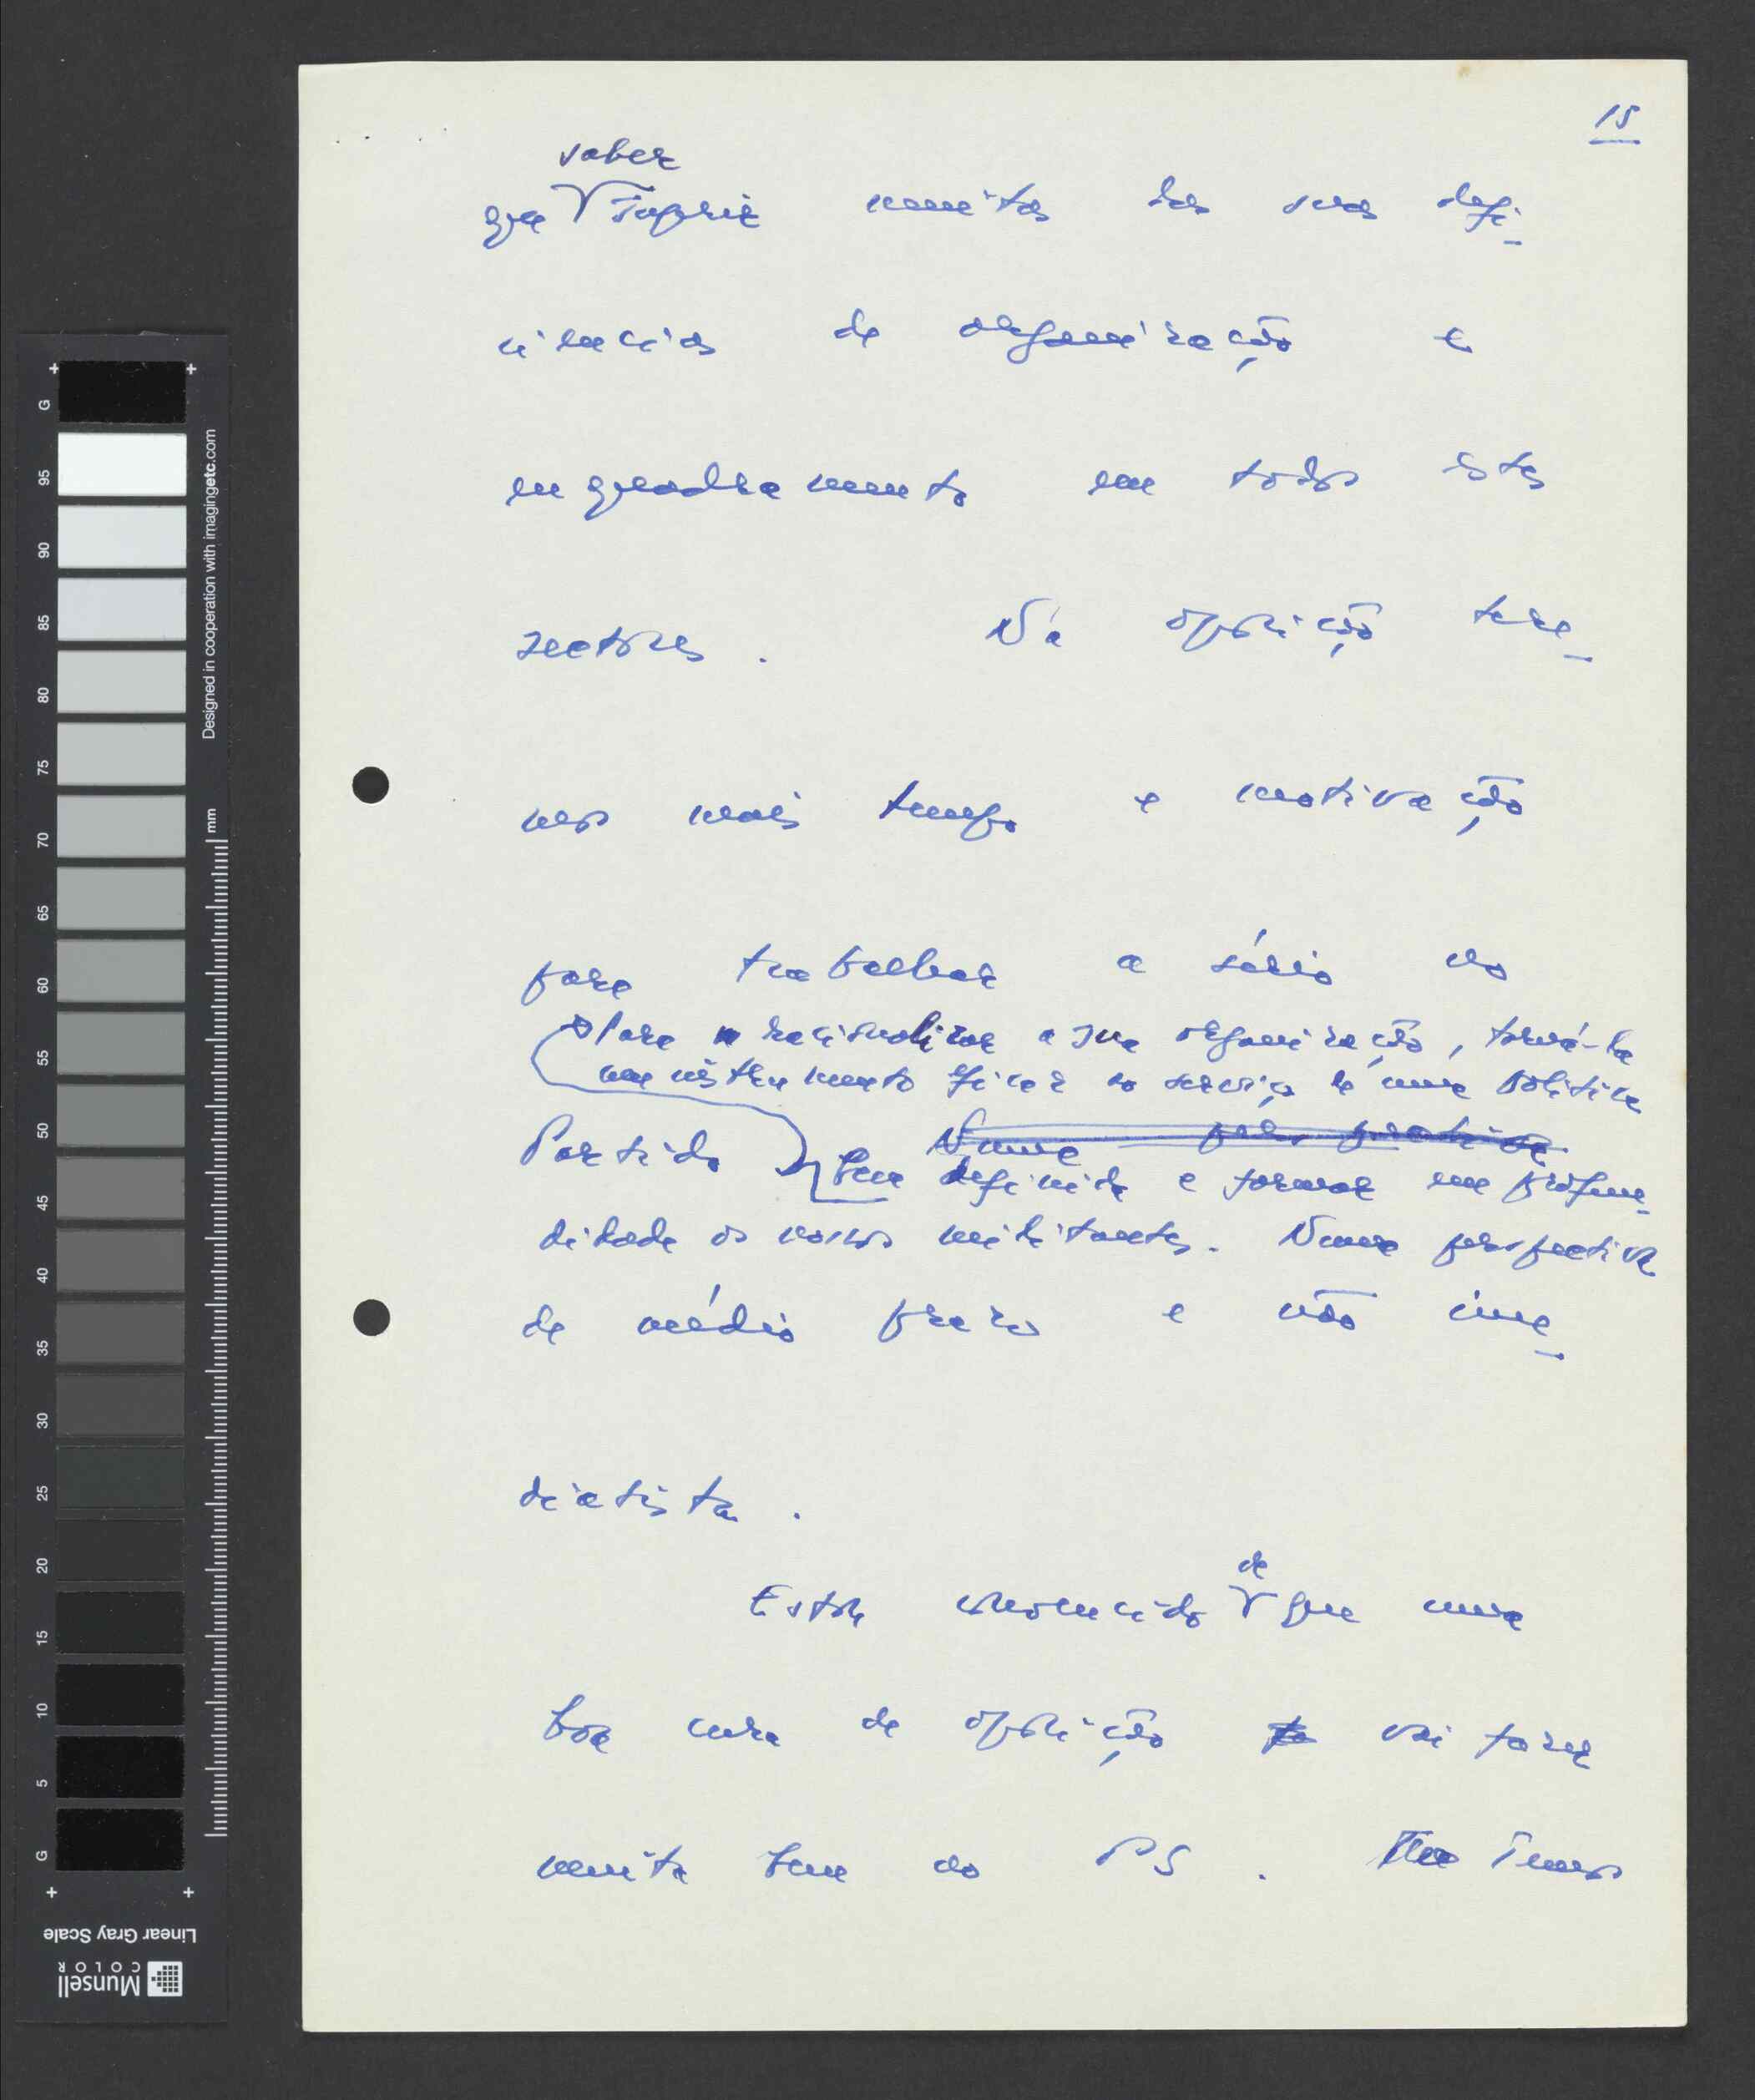 15
saber
que suprir muitas das suas defi-
ciências de organização e
enquadramento em todos estes
sectores. Na oposição tere-
mos mais tempo e motivação
para trabalhar a sério no
Para racionalizar a sua organização, torná-la
um instrumento eficaz ao serviço de uma política
Partido Numa perspectiva
bem definida e formar em profun-
didade os nossos militantes. Numa perspectiva
de médio prazo e não ime-
diatista.
de
Estou convencido que uma
boa cura de oposição vai fazer
muito bem ao PS. Temos
G
95
90
85
80
75
70
65
60
55
50
45
40
35
30
25
20
15
10
5
G
Designed in cooperation with imagingetc.com
mm
Linear Gray Scale
Munsell
COLOR